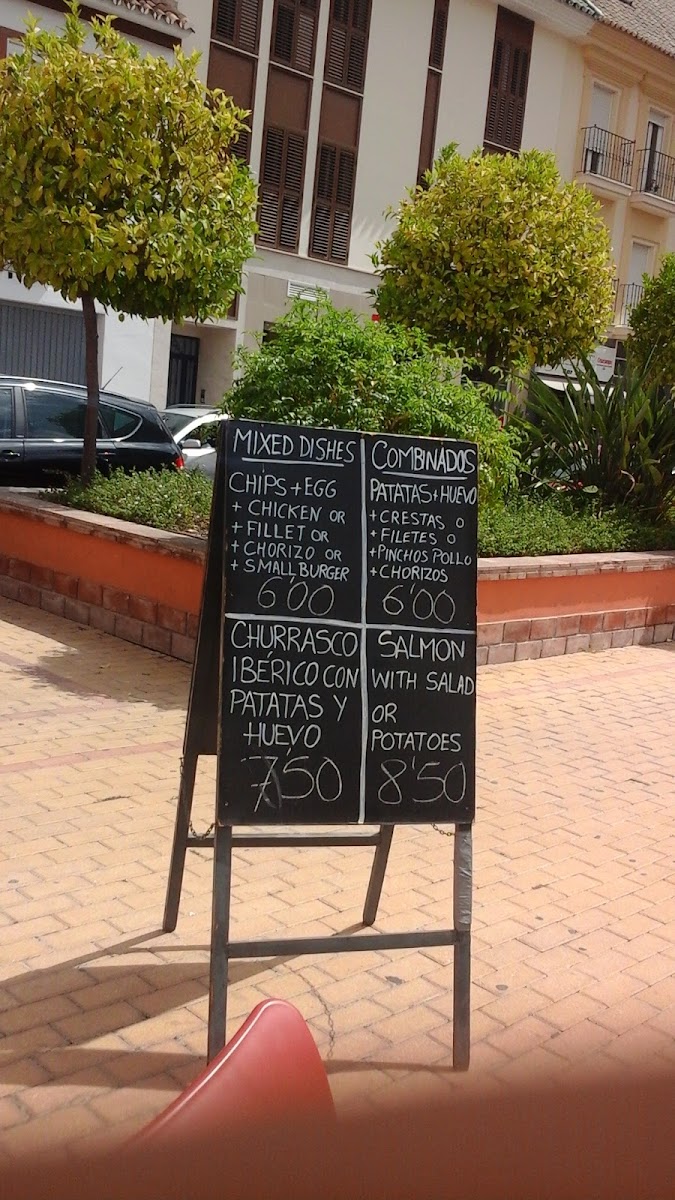 MIXED DISHES
CHIPS + EGG
+ CHICKEN OR
+ FILLET OR
+ CHORIZO OR
+ SMALL BURGER
6'00
COMBINADOS
PATATAS + HUEVO
+ CRESTAS O
+ FILETES O
+ PINCHOS POLLO
+ CHORIZOS
6'00
CHURRASCO
IBÉRICO CON
PATATAS Y
HUEVO
7'50
SALMON
WITH SALAD
OR
POTATOES
8'50